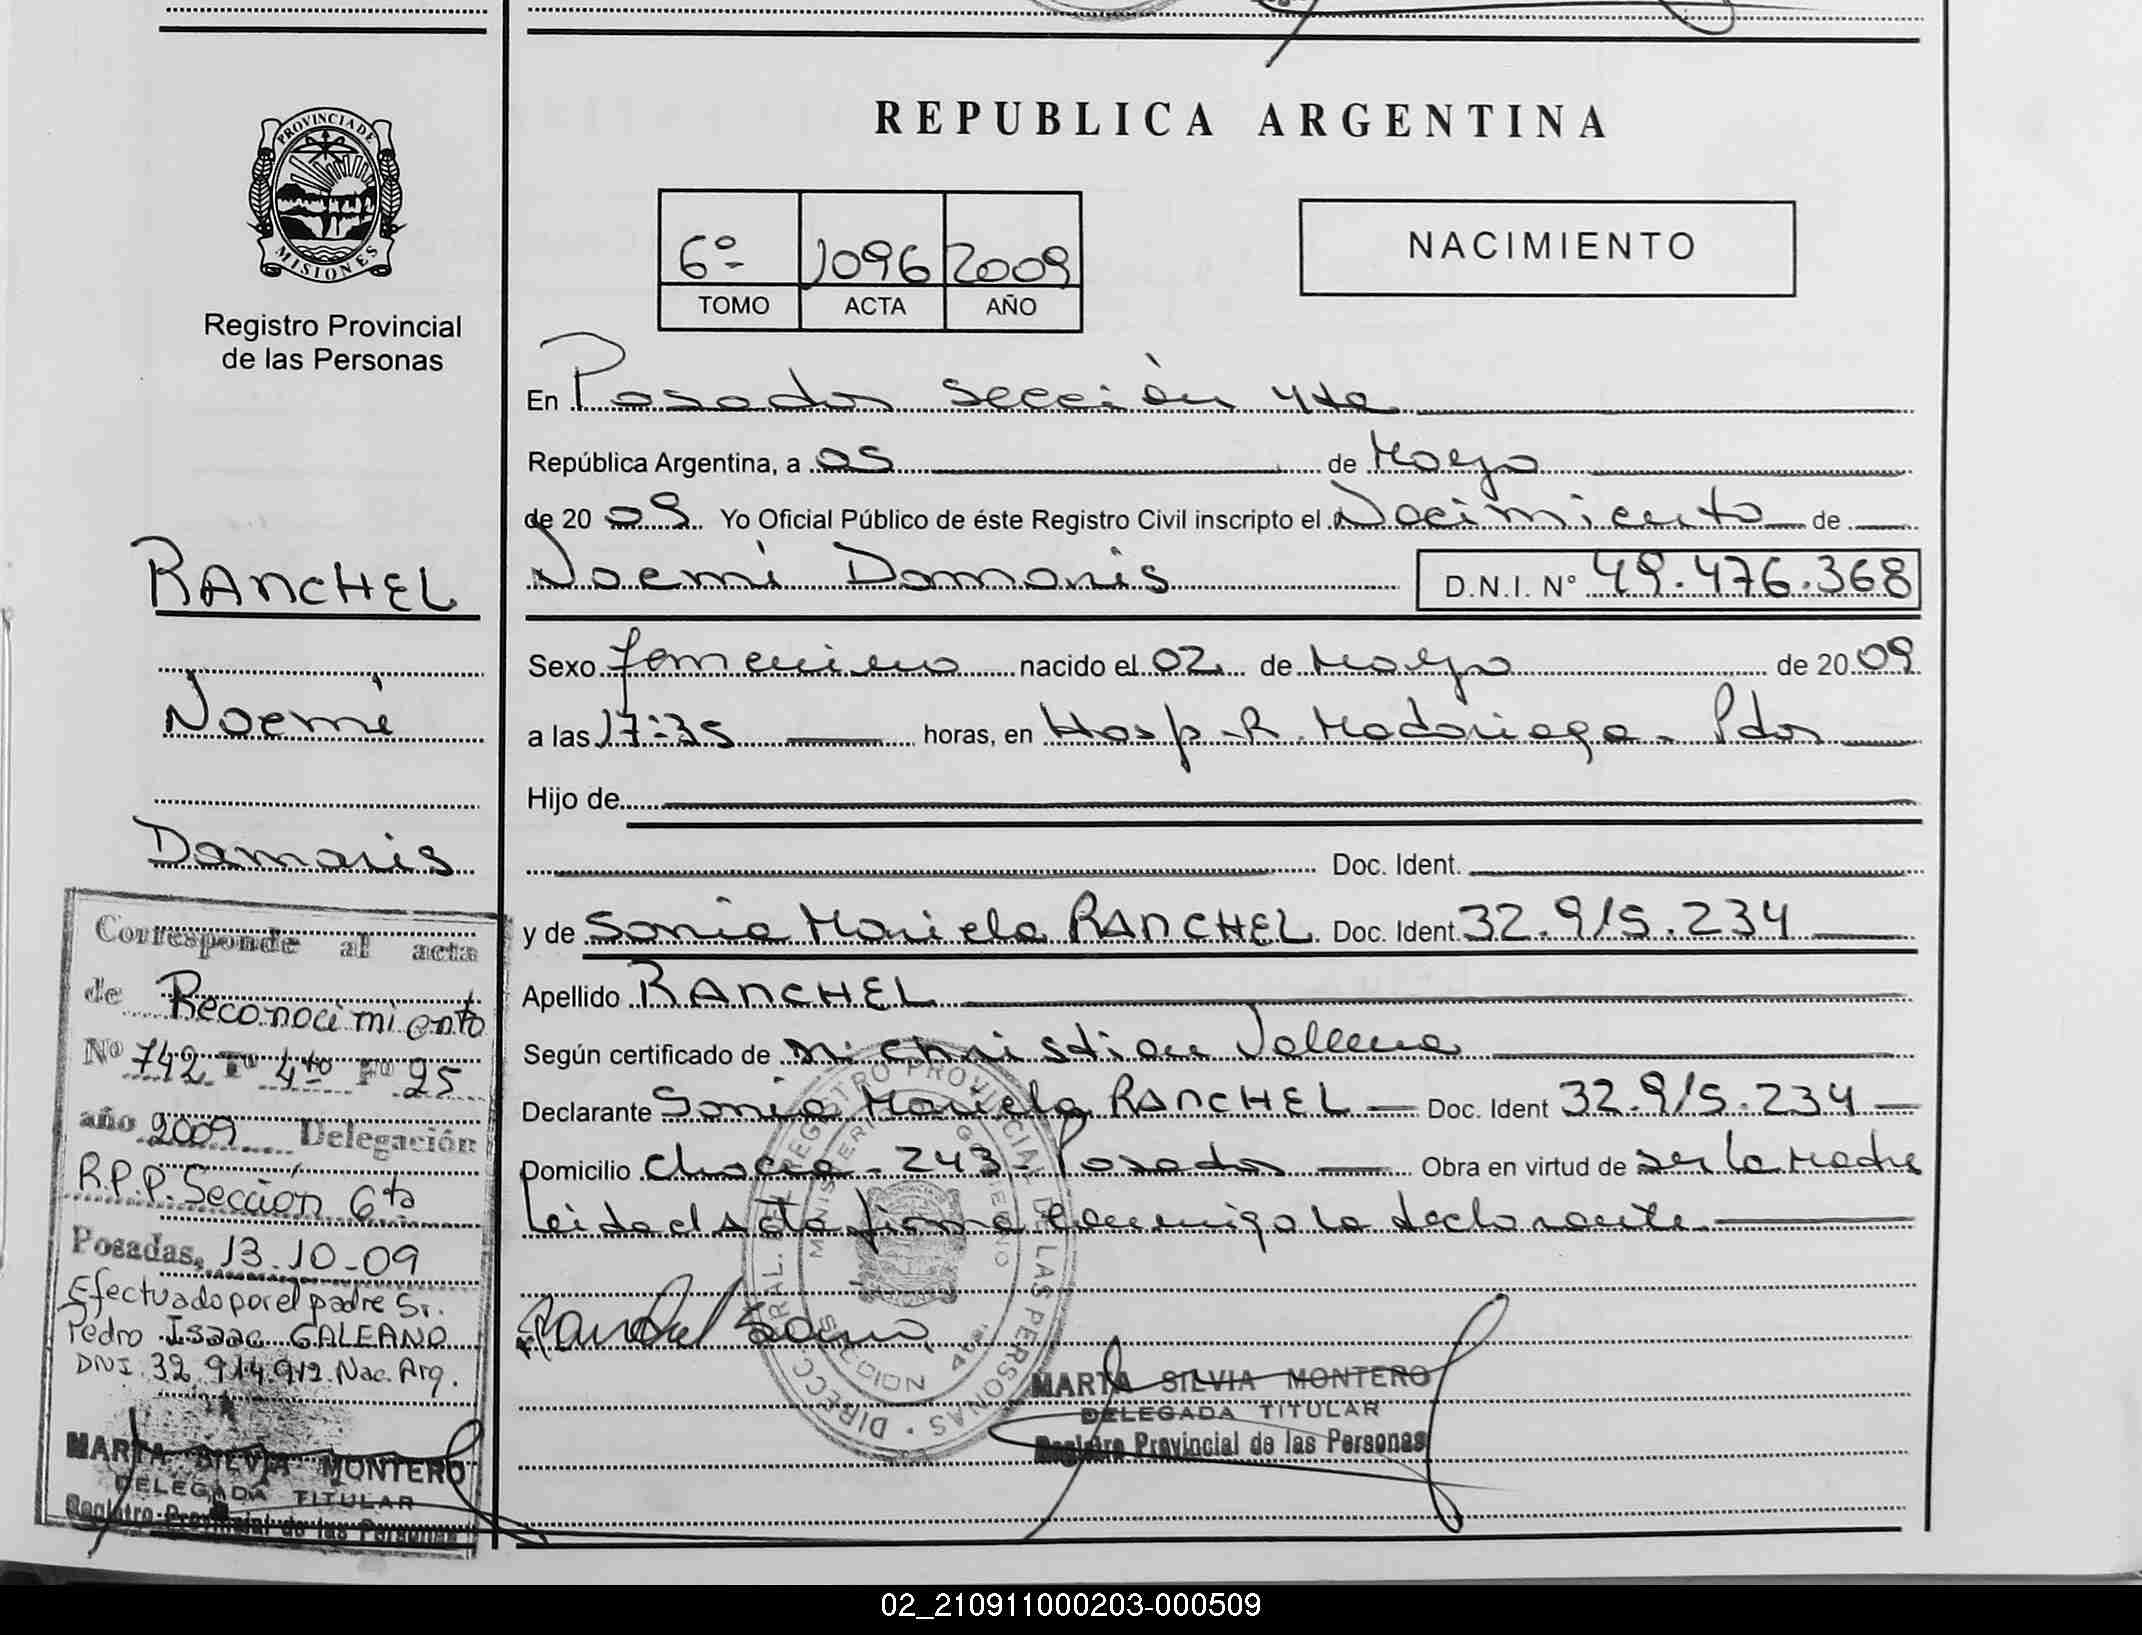 REPUBLICA ARGENTINA
PROVINCIA DE
MISIONES
Registro Provincial
de las Personas
6º 1096 2009
TOMO ACTA AÑO
NACIMIENTO
En Posadas Sección 4ta
República Argentina, a 05 de Mayo
de 20 09 Yo Oficial Público de éste Registro Civil inscripto el Nacimiento de
Noemi Damaris D.N.I. Nº 49.476.368
Sexo femenino nacido el 02 de Mayo de 20 09
a las 17:35 horas, en Hosp. R. Madariaga - Pdas
Hijo de
Doc. Ident.
y de Sonia Mariela RANCHEL Doc. Ident. 32.915.234
Apellido RANCHEL
Según certificado de Christian
Declarante Sonia Mariela RANCHEL Doc. Ident 32.915.234
Domicilio 243 - Posadas Obra en virtud de ser la Madre
Leida el Acta firma conmigo la declarante
Ranchel Sonia
MARTA SILVIA MONTERO
DELEGADA TITULAR
Registro Provincial de las Personas
RANCHEL
Noemi
Damaris
Corresponde al acta
de Reconocimiento
Nº 742 Tº 4to Fº 25
año 2009 Delegación
R.P.P. Sección 6ta
Posadas, 13-10-09
Efectuado por el padre Sr.
Pedro Isaac GALEANO
DNI. 32.914.912. Nac. Arg.
MARTA SILVIA MONTERO
DELEGADA TITULAR
Registro Provincial de las Personas
02_210911000203-000509